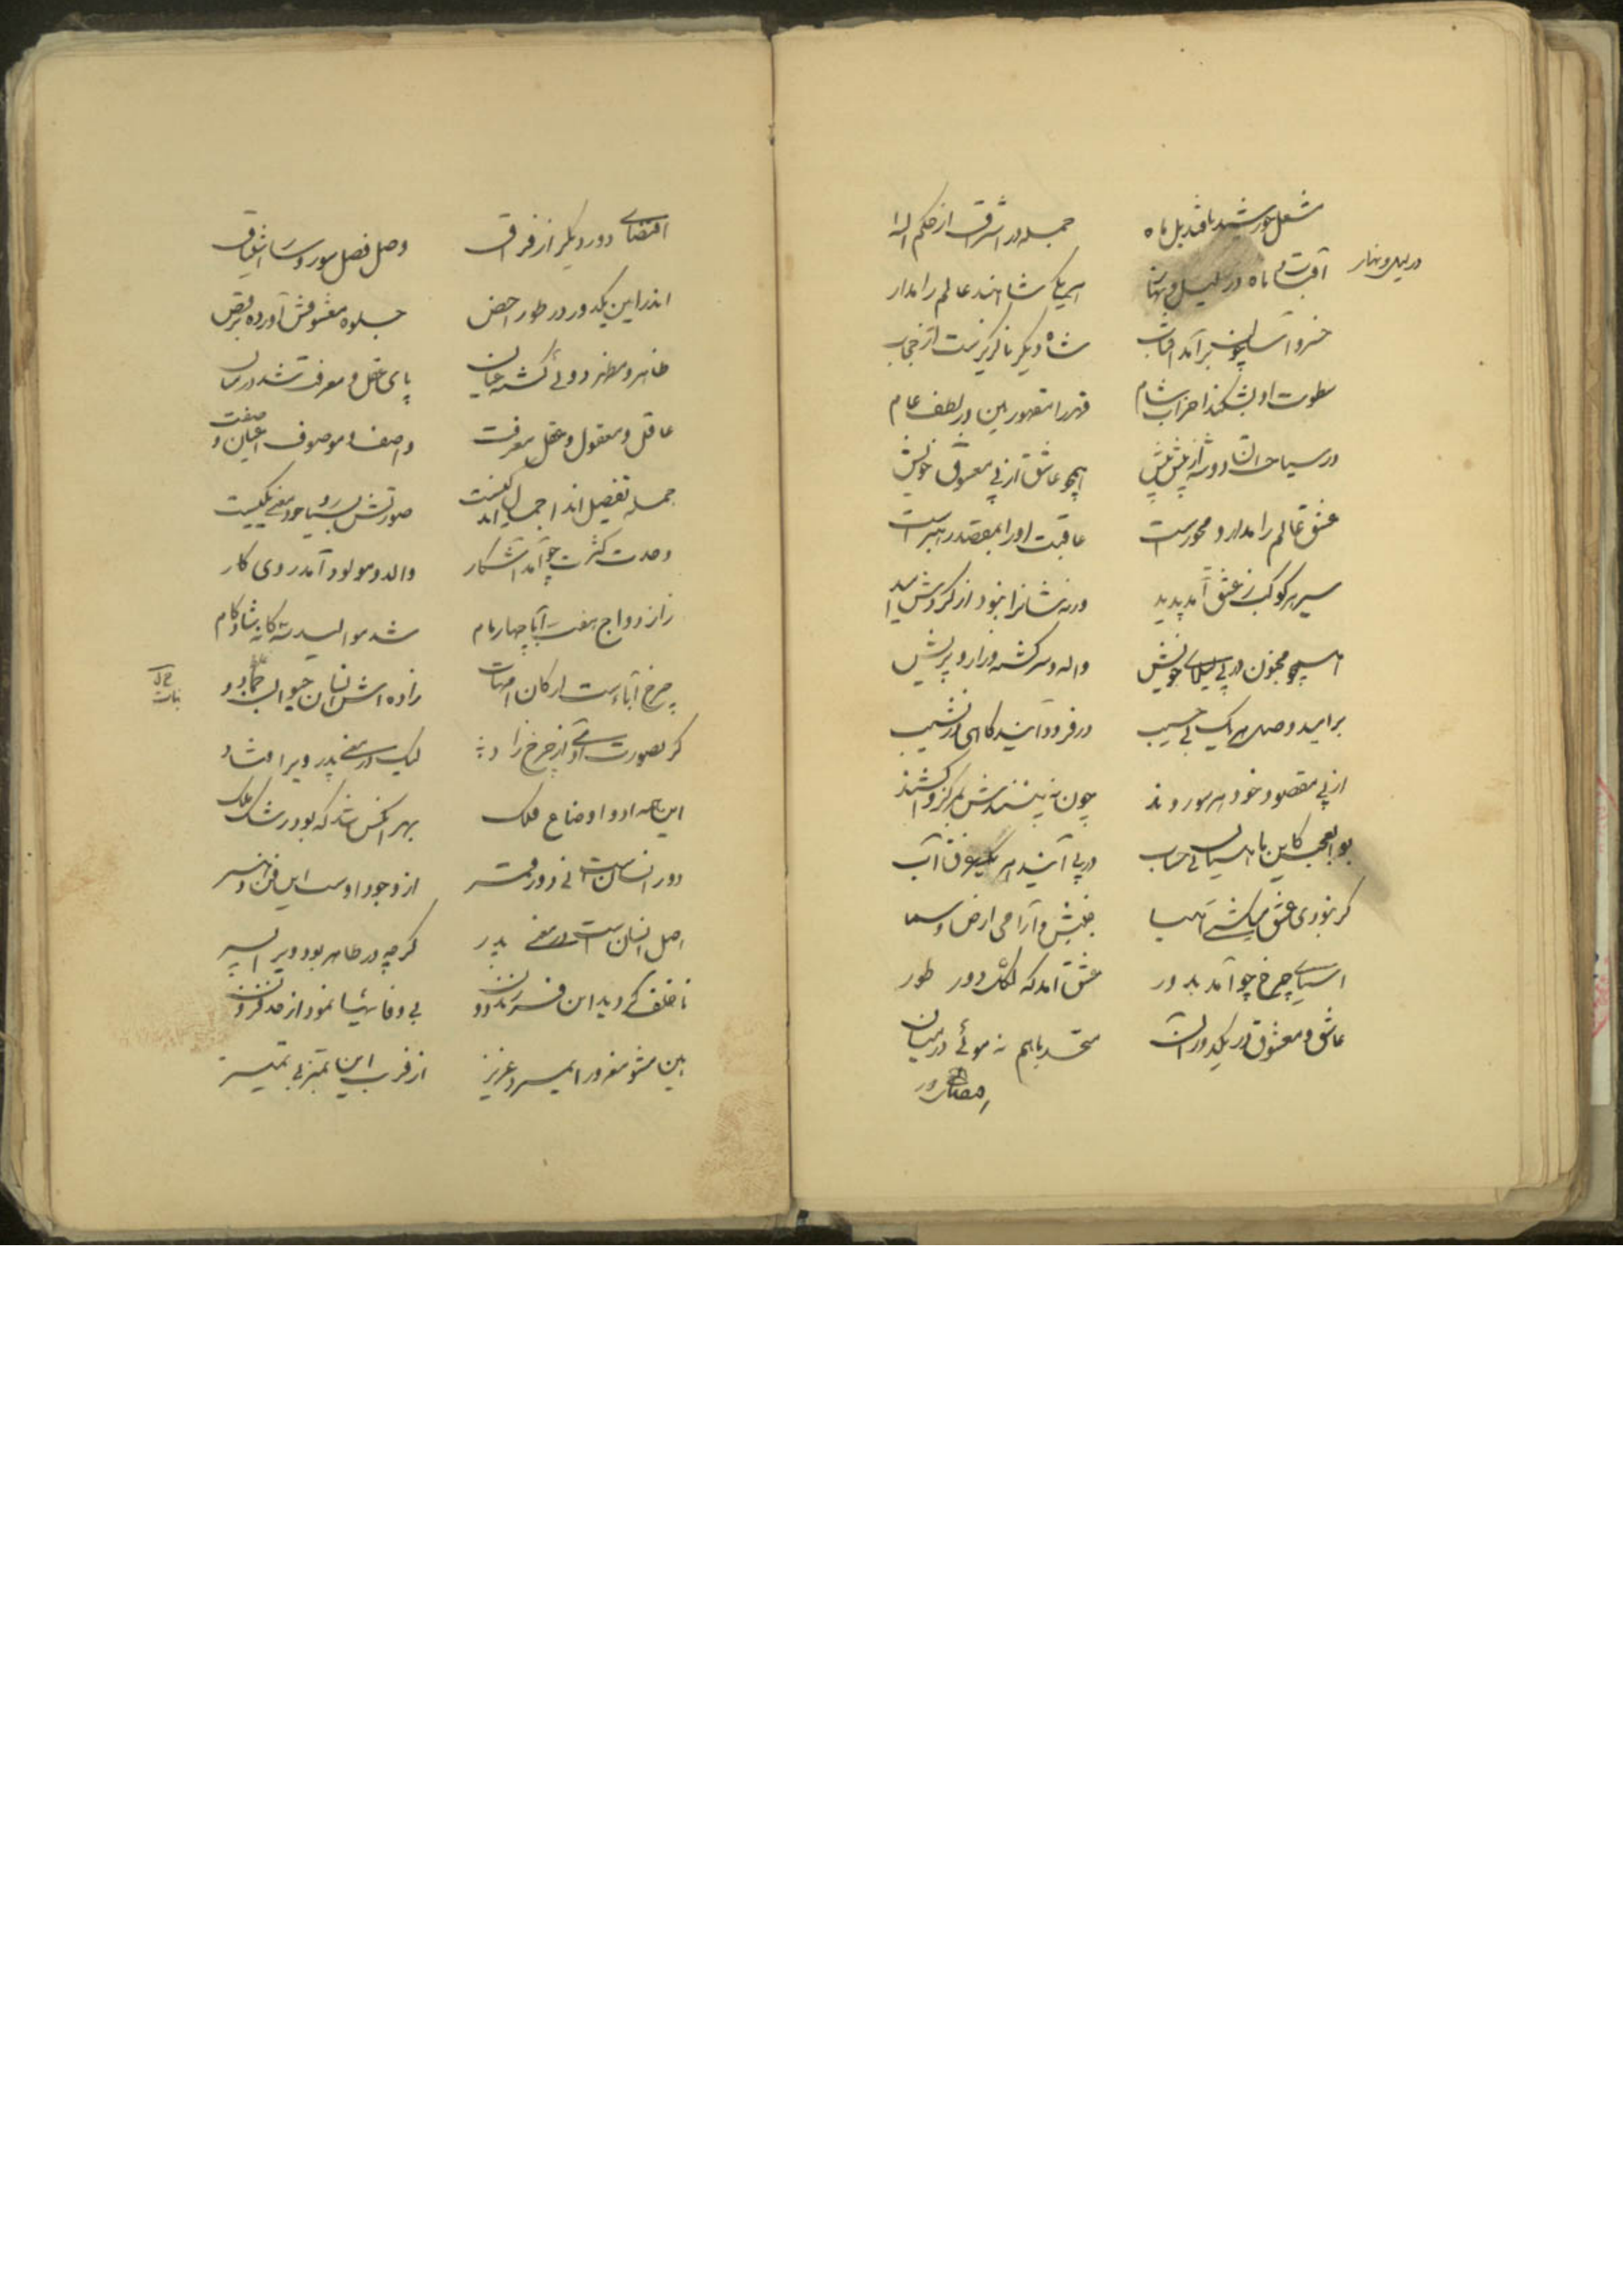 مشعل خورشید با قندیل ماه جمله در اشراق از حکم اله
آفتاب و ماه در لیل و نهار هر یکی شاهند عالم را مدار
در لیل و نهار
خسرو آسا چون برآمد آفتاب شاه دیگر ناگزیرست از حجاب
سطوت او بشکند احزاب شام قهر را مقهور بین در لطف عام
در سیاحت آن دو شه از پیش پیش همچو عاشق از پی معشوق خویش
عشق عالم را مدار و محورست عاقبت او را بمقصد رهبرست
سیر هر کوکب ز عشق آمد پدید ورنه شانرا نبود از گردش امید
همچو مجنون در پی لیلای خویش واله و سرگشته و زار و پریش
بر امید وصل هر یک بی حسیب در فرود آیند گاهی در نشیب
از پی مقصود خود هر سو روند چون نه بینندش بمرکز واکشند
بوالعجب کاین با همه بی حساب در پی آیند هر یک غرق آب
گر نبودی عشق می گشتی هبا جنبش و آرامی ارض و سما
آسیای چرخ چو آمد بدور عشق آمد که دور طور
عاشق و معشوق در یکدور آن متحد باهم نه موئی در میان
اقتضای دور
اقتضای دور دیگر از فراق وصل فصل سور و اشتیاق
اندر این یکدور در طور اخص جلوه معشوقش آورده برقص
ظاهر و مظهر دوئی گشته عیان پای عقل و معرفت شد در میان
عاقل و معقول و عقل معرفت واصف و موصوف اعیان و صفت
جمله تفصیل اند اجمال یکیست صورتش بسیار و خود معنی یکیست
وحدت کثرت چو آمد آشکار والد و مولود آمد روی کار
ز ازدواج هفت آبا چار مام شد موالید سه گانه شادکام
چرخ آباءست ارکان امهات زاده اش انسان حیوان جماد و
نبات
گر بصورت آدمی از چرخ زاد لیک در معنی پدر ویرا فتاد
این همه ادوار اوضاع فلک بهر آنکس شد که بود رشک ملک
دور انسانست نی دور قمر از وجود اوست این فن و هنر
اصل انسان است در معنی پدر گرچه در ظاهر بود ویرا پسر
ناخلف گردید این فرزند دون بی وفائیها نمود از حد فزون
هین مشو مغرور ای مرد عزیز از فریب این بی تمیز